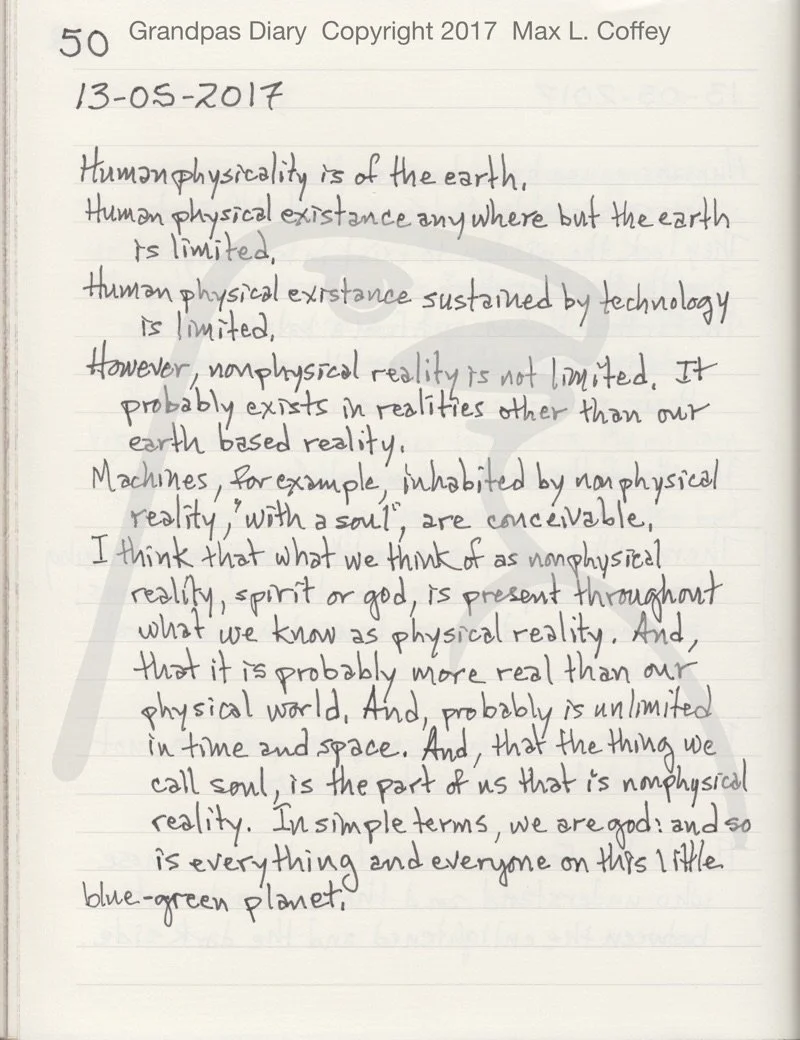 50 Grandpas Diary Copyright 2017 Max L. Coffey
13-05-2017
Human physicality is of the earth.
Human physical existance anywhere but the earth
is limited.
Human physical existance sustained by technology
is limited.
However, nonphysical reality is not limited. It
probably exists in realities other than our
earth based reality.
Machines, for example, inhabited by nonphysical
reality, "with a soul", are conceivable.
I think that what we think of as nonphysical
reality, spirit or god, is present throughout
what we know as physical reality. And,
that it is probably more real than our
physical world. And, probably is unlimited
in time and space. And, that the thing we
call soul, is the part of us that is nonphysical
reality. In simple terms, we are god: and so
is everything and everyone on this little
blue-green planet.